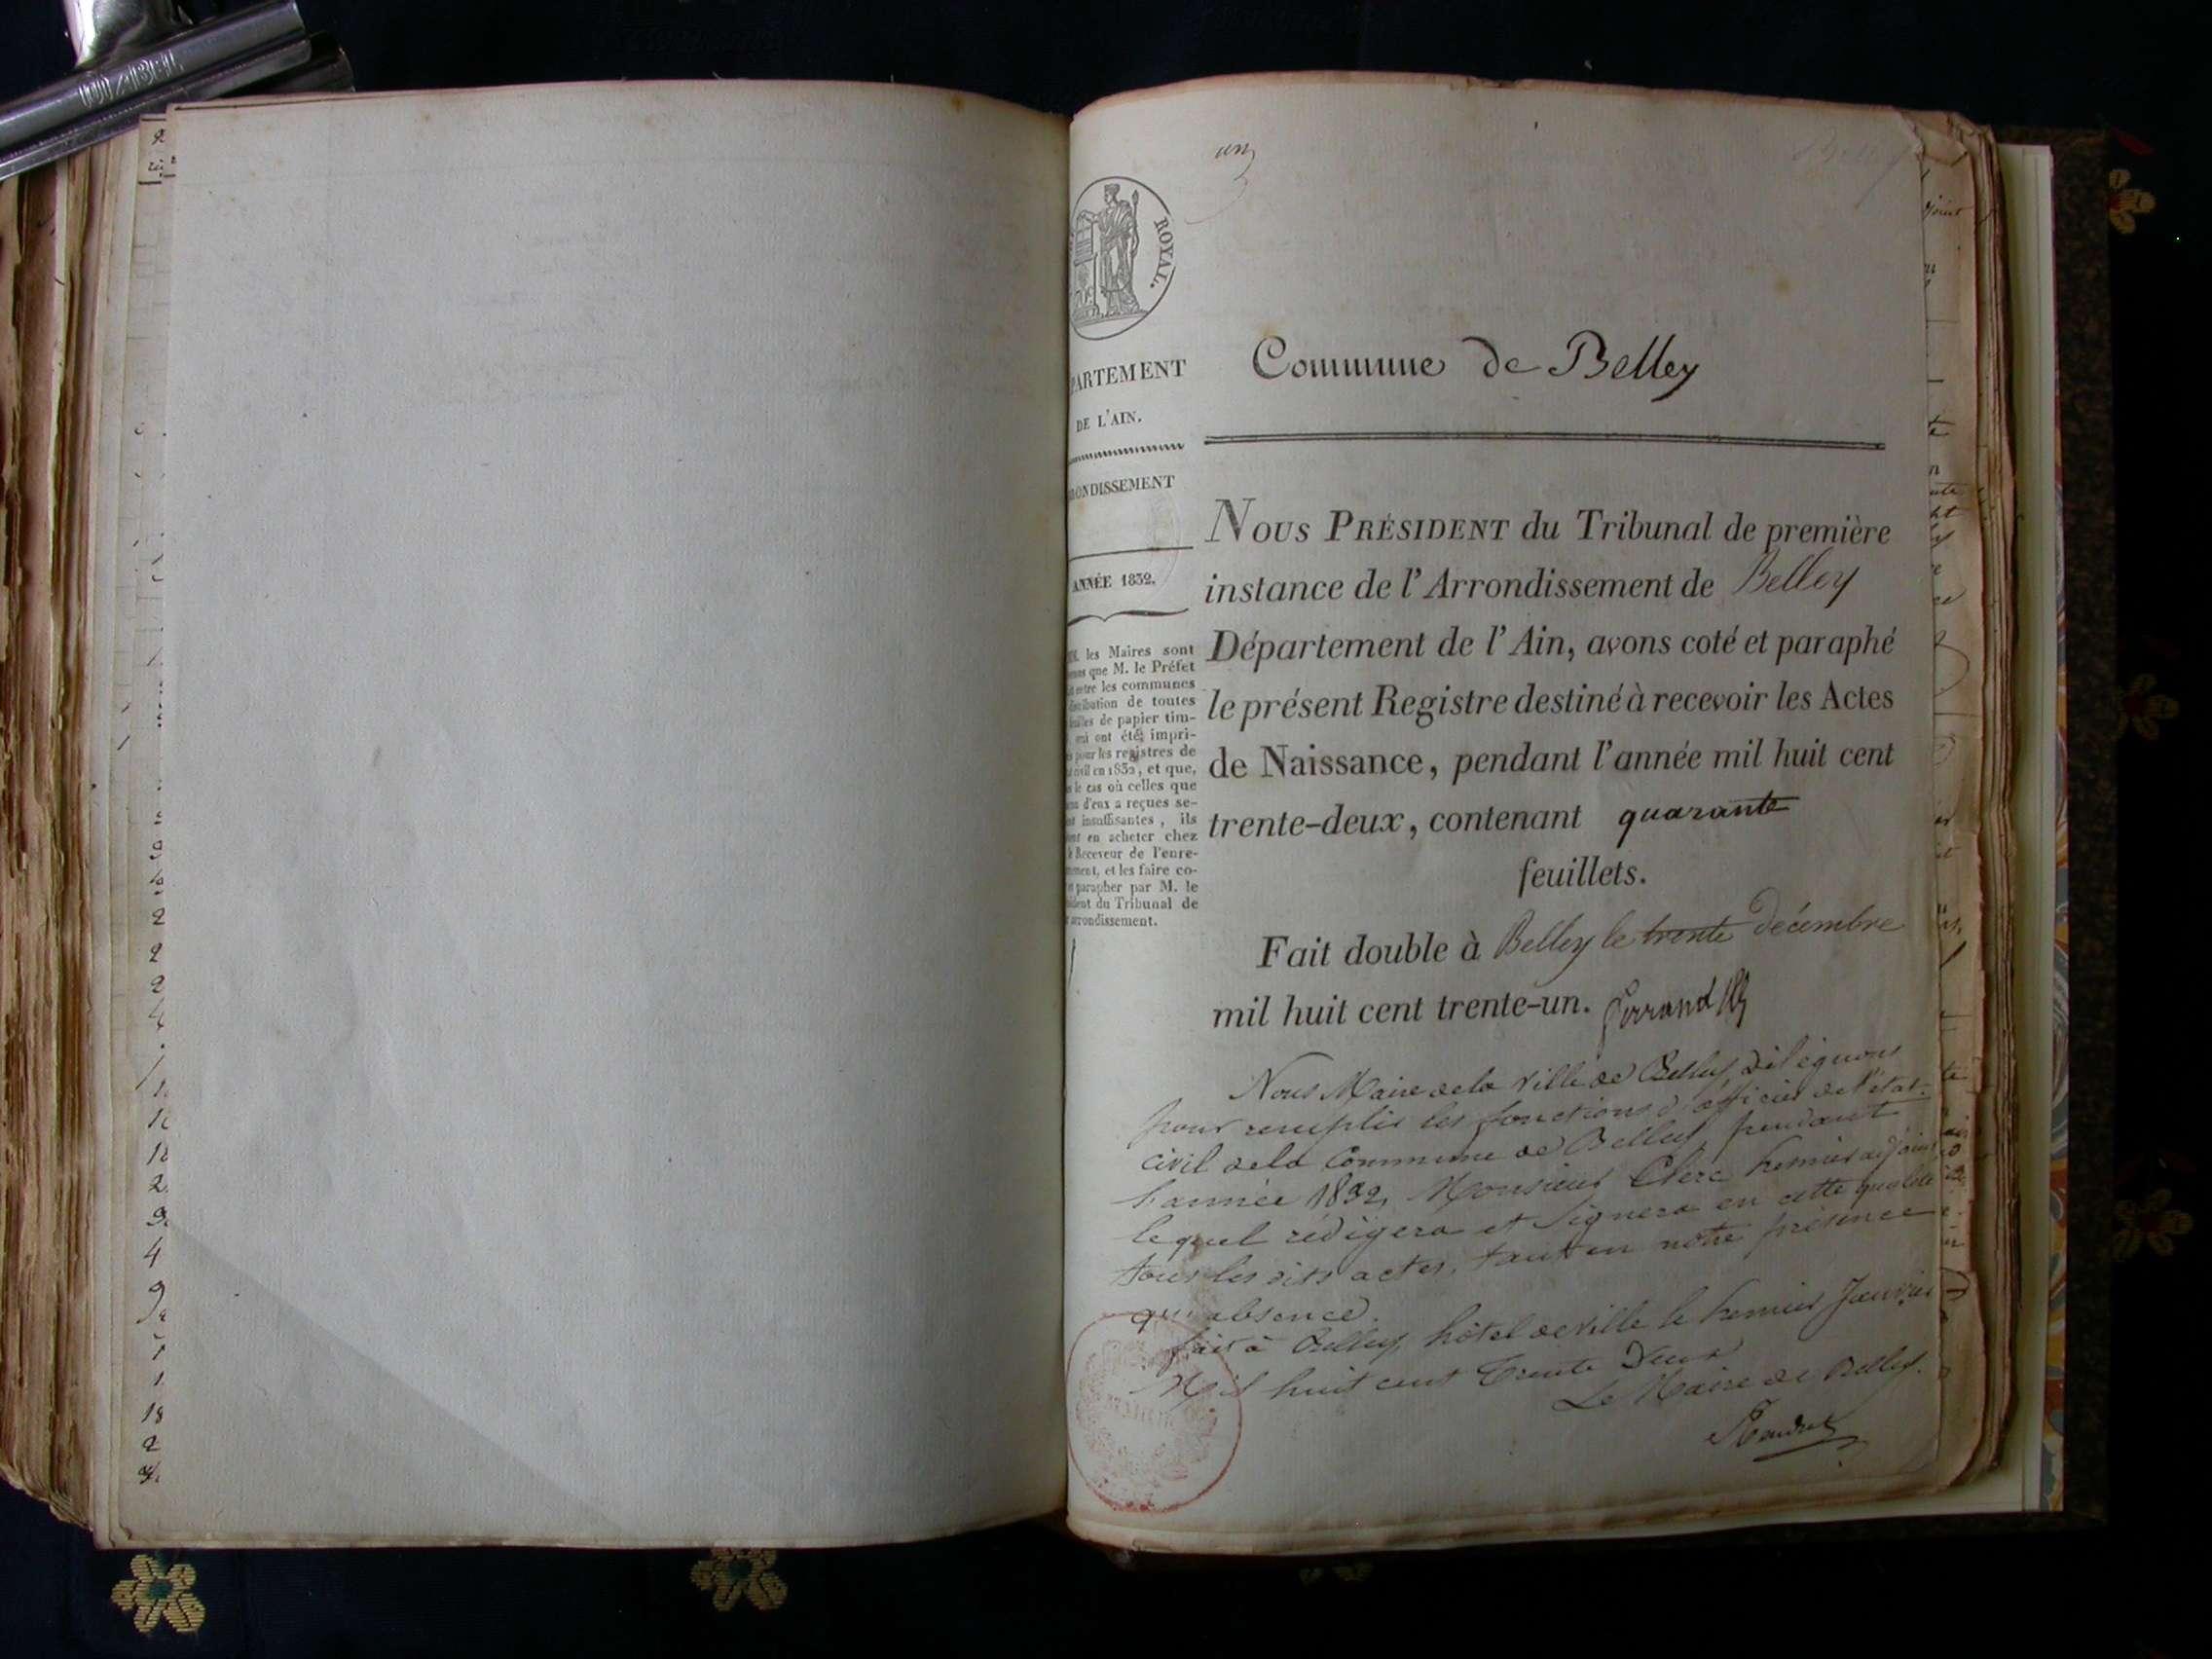 un
ROYAL.
Commune de Belley
PARTEMENT
DE L'AIN.
ONDISSEMENT
ANNÉE 1832.
les Maires sont
que M. le Préfet
entre les communes
de toutes
de papier tim-
ont été impri-
pour les registres de
civil en 1832, et que,
le cas où celles que
d'eux a reçues se-
insuffisantes, ils
en acheter chez
Receveur de l'enre-
ment, et les faire co-
parapher par M. le
du Tribunal de
arrondissement.
NOUS PRÉSIDENT du Tribunal de première
instance de l'Arrondissement de Belley
Département de l'Ain, avons coté et paraphé
le présent Registre destiné à recevoir les Actes
de Naissance, pendant l'année mil huit cent
trente-deux, contenant quarante
feuillets.
Fait double à Belley le trente décembre
mil huit cent trente-un.
Nous Maire de la Ville de Belley, déléguons
pour remplir les fonctions d'officier de l'état-
civil de la Commune de Belley, pendant
l'année 1832, Monsieur Clerc premier adjoint
lequel rédigera et signera en cette qualité
tous les dits actes, tant en notre présence
qu'absence.
fait à Belley, hôtel de ville le premier Janvier
Mil huit cent Trente Deux
Le Maire de Belley.